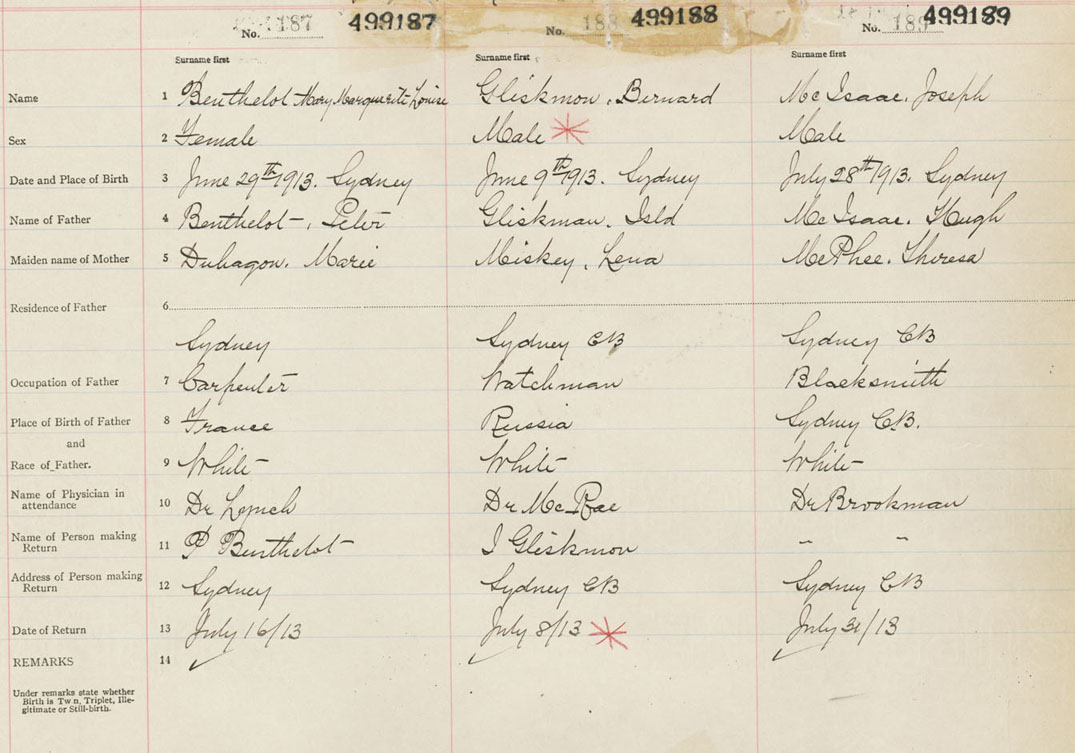 No. 187 499187 No. 188 499188 No. 189 499189
Surname first Surname first Surname first
Name 1 Benthelot Mary Marguerite Louise Gliskmon, Bernard McIsaac, Joseph
Sex 2 Female Male * Male
Date and Place of Birth 3 June 29th 1913. Sydney June 9th 1913. Sydney July 28th 1913. Sydney
Name of Father 4 Benthelot, Peter Gliskman, Isld McIsaac, Hugh
Maiden name of Mother 5 Duhagon, Marie Miskey, Lena McPhee, Theresa
Residence of Father 6
Sydney Sydney CB Sydney CB
Occupation of Father 7 Carpenter Watchman Blacksmith
Place of Birth of Father 8 France Russia Sydney C.B.
and
Race of Father. 9 White White White
Name of Physician in
attendance 10 Dr Lynch Dr McRae Dr Brookman
Name of Person making
Return 11 P Benthelot I Gliskmon " "
Address of Person making
Return 12 Sydney Sydney CB Sydney CB
Date of Return 13 July 16/13 July 8/13 * July 31/13
REMARKS 14 ✓ ✓ ✓
Under remarks state whether
Birth is Twin, Triplet, Ille-
gitimate or Still-birth.